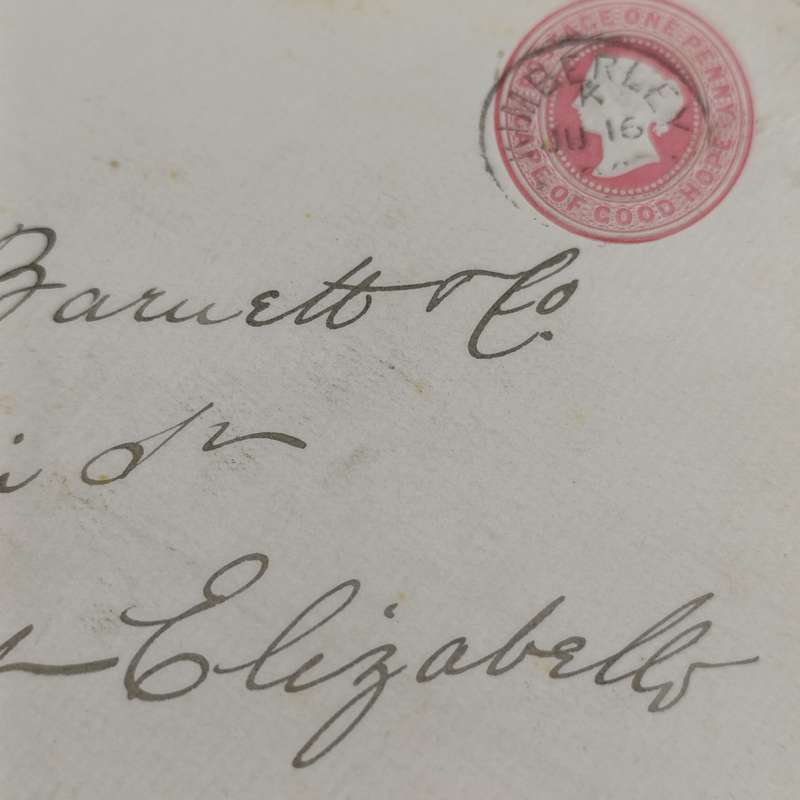 POSTAGE ONE PENNY
CAPE OF GOOD HOPE
KIMBERLEY
A
JU 16
Barnett & Co.
i St
Elizabeth